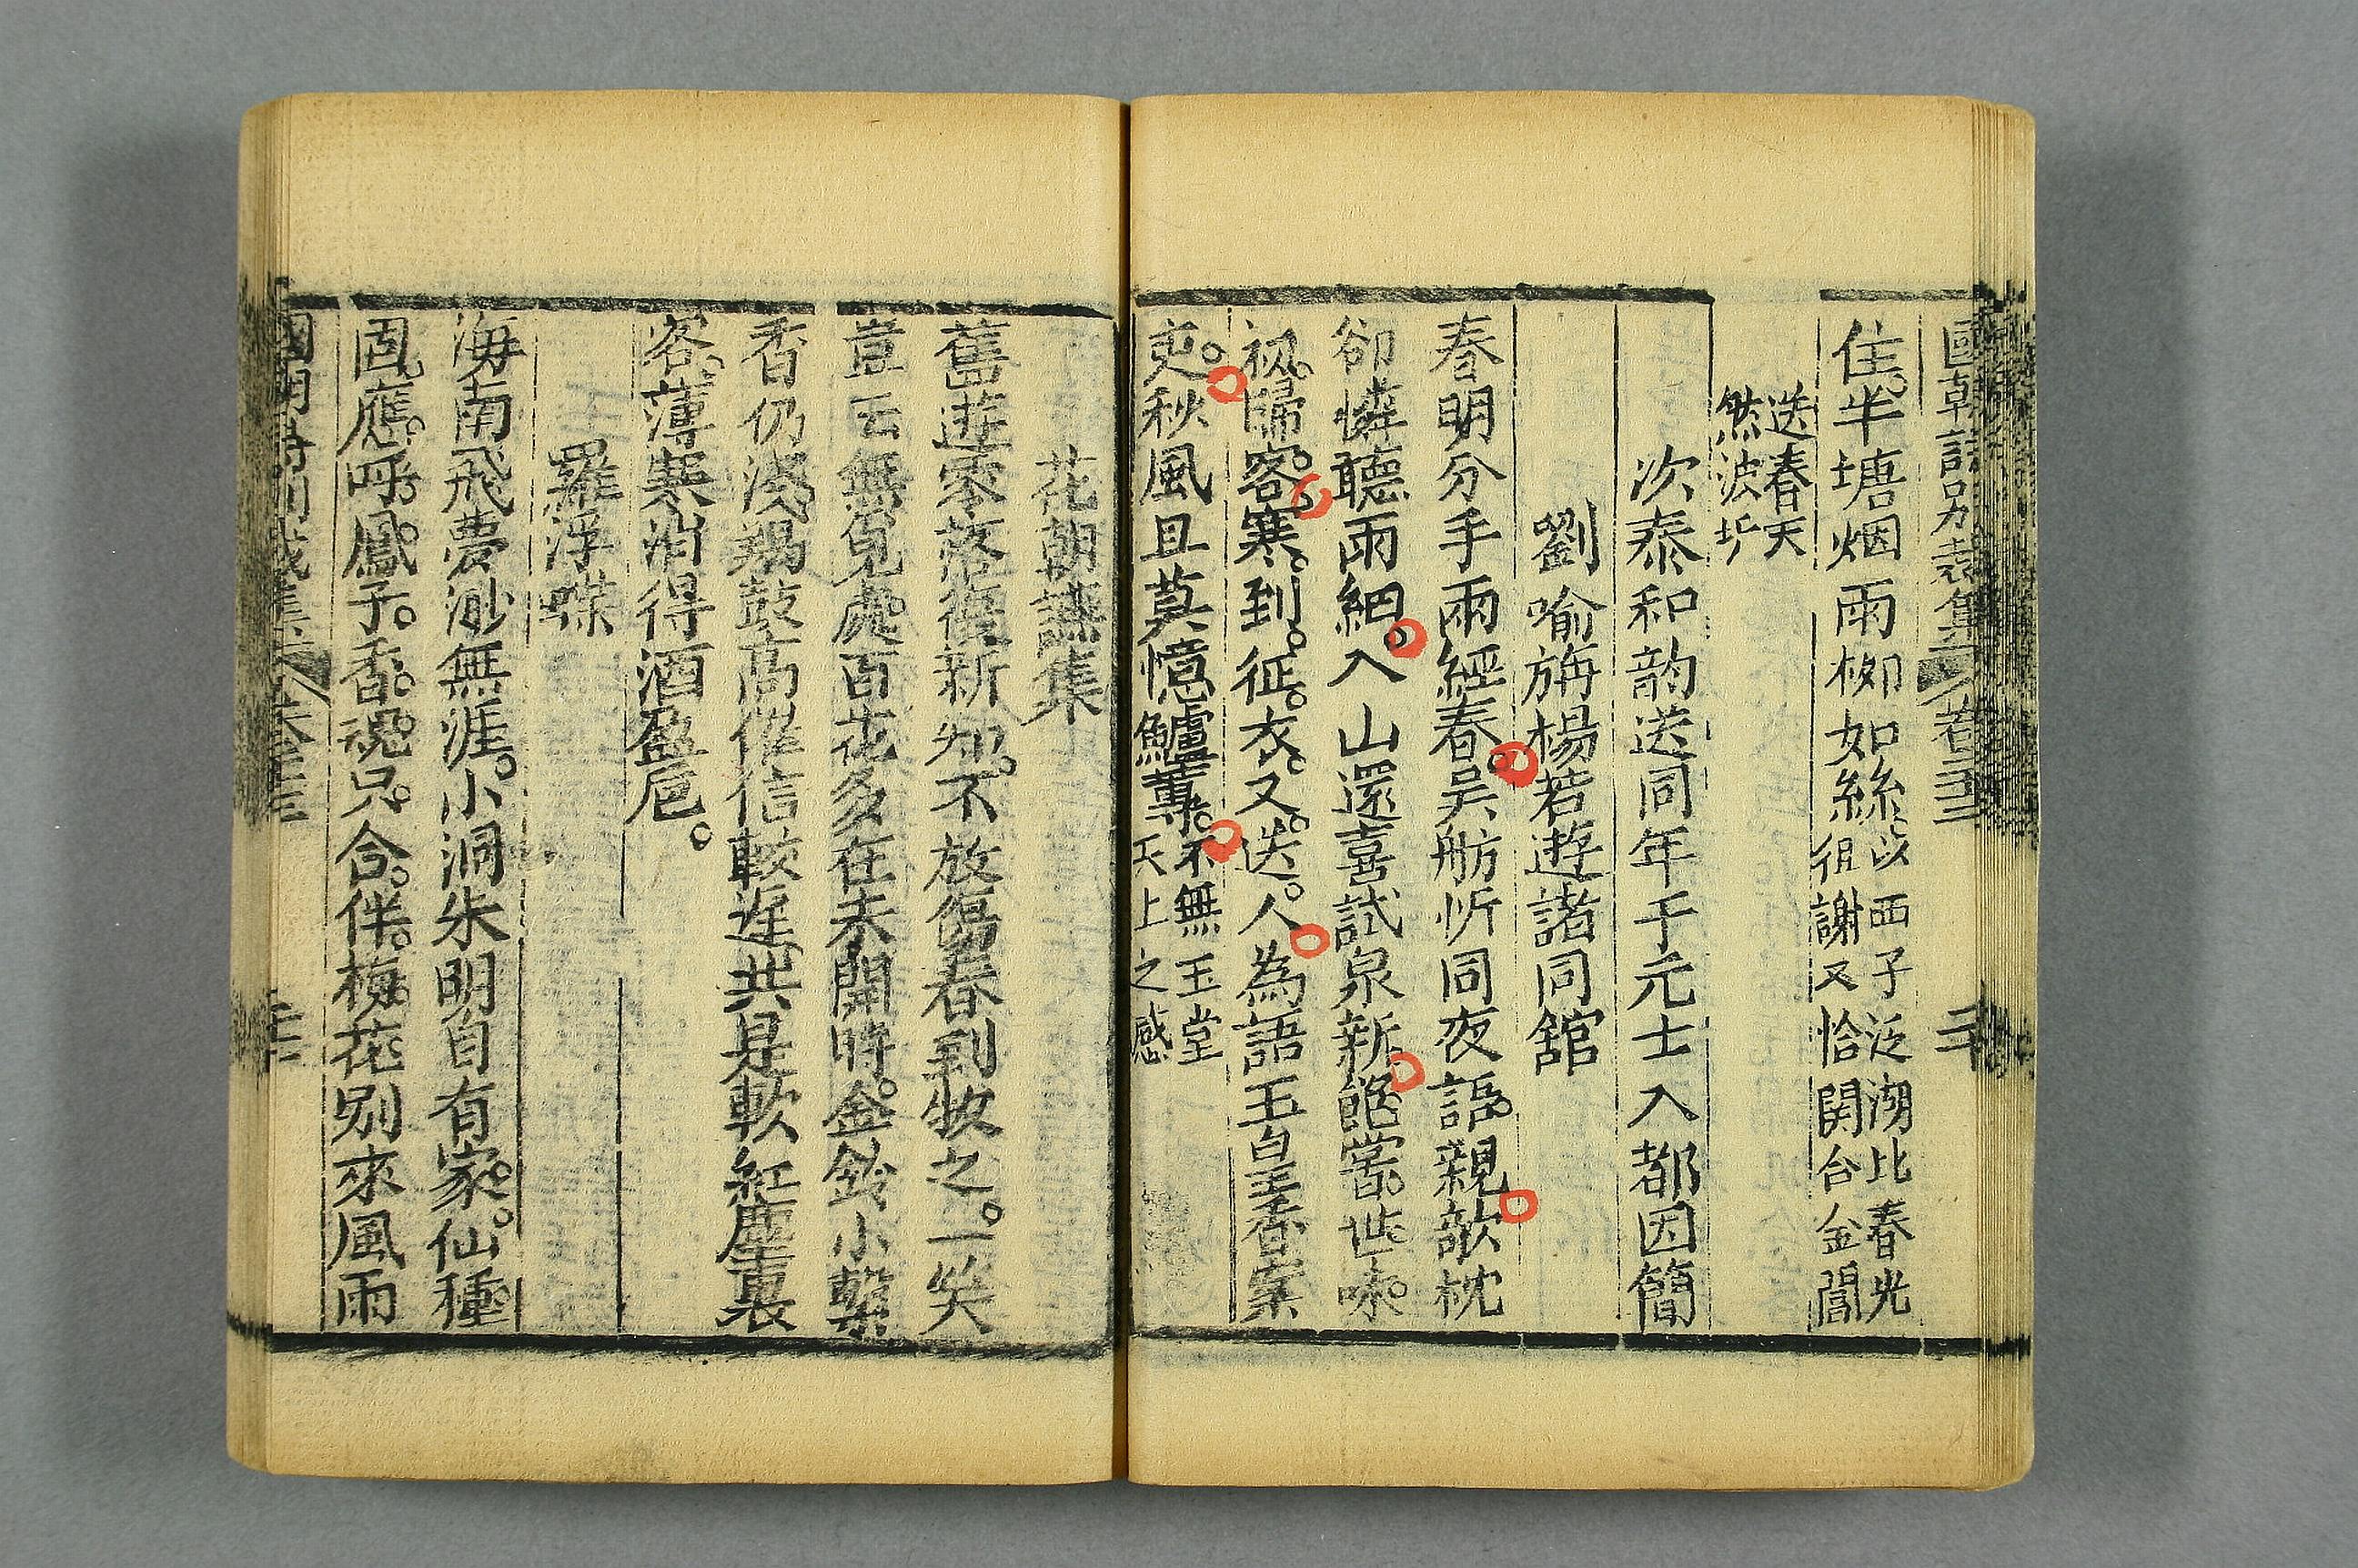 國朝詩別裁集 卷三三 二十
住半塘烟雨栁如絲以西子泛湖比春光
徂謝又恰関合金閶
送春天
然波圻
次泰和韵送同年于元士入都因簡
劉喻旃楊若遊諸同舘
春明分手兩經春。吴舫忻同夜語親。欹枕
卻憐聽雨細。入山還喜試泉新。飽嘗世味。
初歸客。寒到征衣又送人。為語玉皇香案
吏。秋風且莫憶鱸蓴。不無玉堂
天上之感
花朝讌集
舊遊零落復新知。不放傷春到牧之。一笑
豈云無覓處。百花多在未開時。金鈴小繫
香仍淺。羯鼓高催信較遲。共是軟紅塵裏
客。薄寒消得酒盈卮。
羅浮蝶
海南飛夢渺無涯。小洞朱明自有家。仙種
固應呼鳳子。香魂只合伴梅花。別來風雨